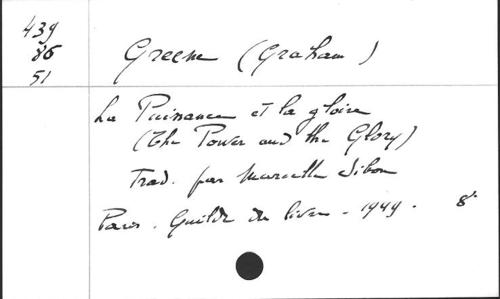 439
86
51
Greene (Graham)
La Puissance et la gloire
(The Power and the Glory)
Trad. par Marcelle Sibon
Paris. Guilde du livre - 1949. 8°